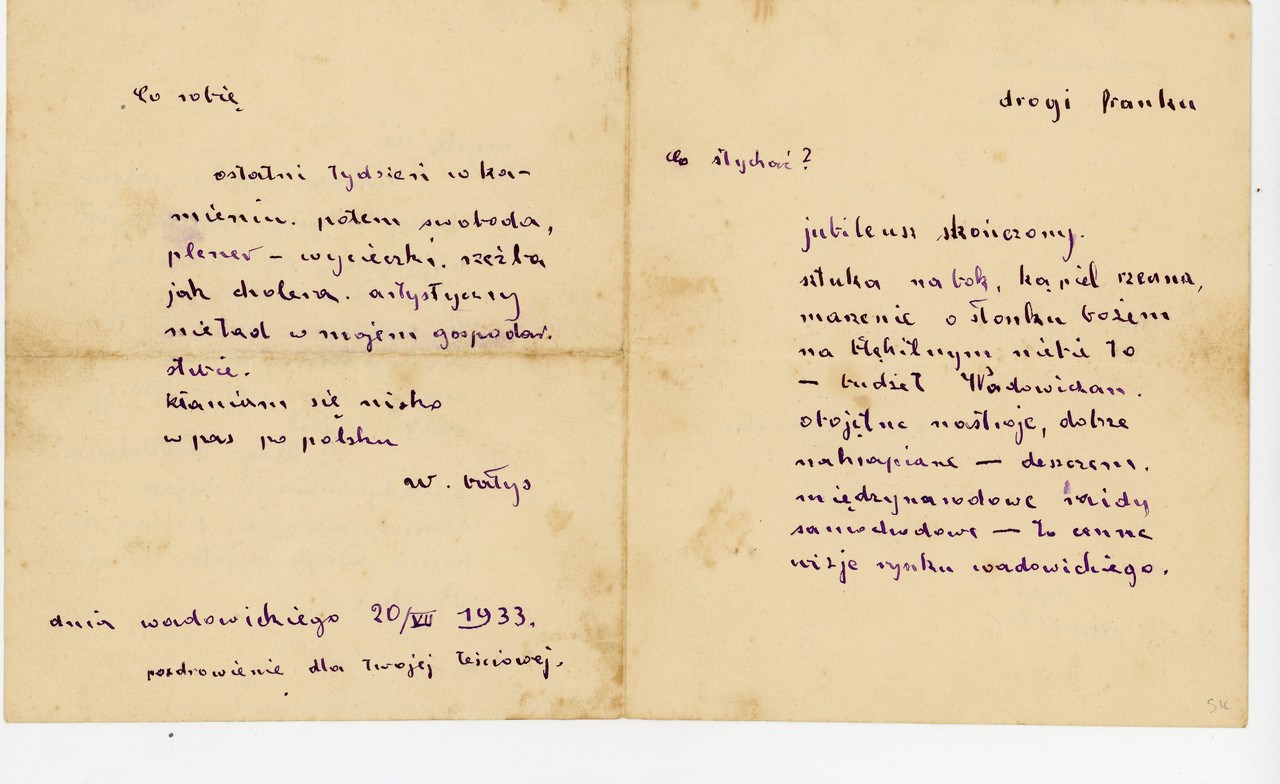 drogi franku
Co słychać?
jubileusz skończony.
sztuka na bok, kąpiel rzeczna,
marzenie o słonku bożem
na błękitnym niebie to
— budżet Wadowiczan.
obojętne nastroje, dobrze
nakrapiane — deszczem.
międzynarodowe raidy
samochodowe — to cenne
wizje rynku wadowickiego.
Co robię
ostatni tydzień w ka-
mieniu. potem swoboda,
plener – wycieczki. rzeźba
jak cholera. artystyczny
nieład w mojem gospodar-
stwie.
kłaniam się nisko
w pas po polsku
w. bałys
dnia wadowickiego 20/VII 1933.
pozdrowienie dla twojej teściowej.
SK